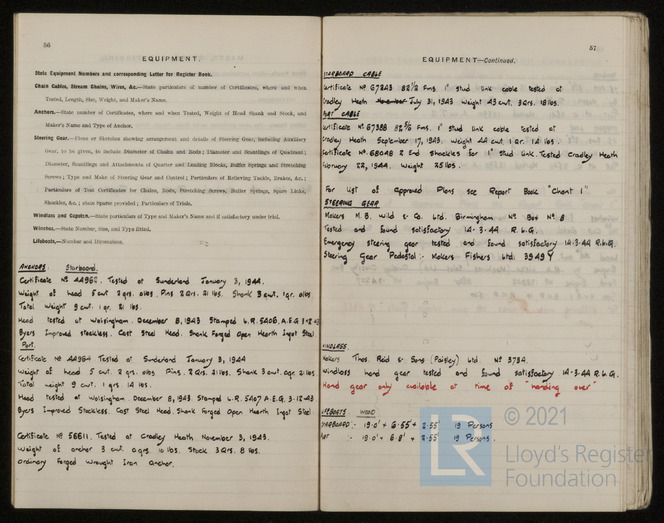 56
EQUIPMENT.
State Equipment Numbers and corresponding Letter for Register Book.
Chain Cables, Stream Chains, Wires, &c.—State particulars of number of Certificates, where and when
Tested, Length, Size, Weight, and Maker's Name.
Anchors.—State number of Certificates, where and when Tested, Weight of Head Shank and Stock, and
Maker's Name and Type of Anchor.
Steering Gear.—Plans or Sketches showing arrangement and details of Steering Gear, including Auxiliary
Gear, to be given, to include Diameter of Chains and Rods; Diameter and Scantlings of Quadrant;
Diameter, Scantlings and Attachments of Quarter and Leading Blocks, Buffer Springs and Stretching
Screws; Type and Make of Steering Gear and Control; Particulars of Relieving Tackle, Brakes, &c.;
Particulars of Test Certificates for Chains, Rods, Stretching Screws, Buffer Springs, Spare Links,
Shackles, &c.; state spares provided; Particulars of Trials.
Windlass and Capstan.—State particulars of Type and Maker's Name and if satisfactory under trial.
Winches.—State Number, Size, and Type fitted.
Lifeboats.—Number and Dimensions.
Anchors. Starboard.
Certificate Nº Tested at Sunderland January 3, 1944.
Weight of head 5 cwt 2 qrs. 0 lbs. Pins 2 Qrs. 21 lbs. Shank 3 cwt. 1 qr. 0 lbs
Total Weight 9 cwt. 1 qr. 21 lbs.
Head tested at Wolsingham. December 8, 1943 Stamped L.R. 5406. A.E.G 3-12-43
Byers Improved stockless. Cast Steel Head. Shank Forged Open Hearth Ingot Steel
Port.
Certificate Nº 44964 Tested at Sunderland January 3, 1944
Weight of head 5 cwt. 2 qrs. 0 lbs. Pins. 2 Qrs. 21 lbs. Shank 3 cwt. 21 lbs
Total weight 9 cwt. 1 qrs 14 lbs.
Head tested at Wolsingham. December 8, 1943. Stamped L.R. 5407 A.E.G. 3-12-43
Byers Improved Stockless. Cast Steel Head. Shank Forged Open Hearth Ingot Steel
Certificate Nº 56611. Tested at Cradley Heath November 3, 1943.
Weight of anchor 3 cwt. 0 qrs. 10 lbs. Stock 3 Qrs. 8 lbs.
Ordinary Forged Wrought Iron Anchor.
57
EQUIPMENT—Continued.
STARBOARD CABLE
Certificate Nº 67243 82½ Fms. 1" stud link cable tested at
Cradley Heath July 31, 1943 Weight 43 cwt. 3 Qrs. 18 lbs.
PORT CABLE
Certificate Nº 67388 82½ Fms. 1" stud link cable tested at
Cradley Heath September 17, 1943. Weight 44 cwt 1 qr 14 lbs.
Certificate Nº 68048 2 End Shackles for 1" stud link. Tested Cradley Heath
February 22, 1944. Weight 25 lbs.
For list of approved Plans see Report Book "Chant 1"
STEERING GEAR
Makers M.B. Wild & Co. Ltd. Birmingham Nº Box Nº 8
Tested and found satisfactory 14-3-44 R.L.G.
Emergency steering gear tested and found satisfactory 14-3-44 R.L.G.
Steering Gear Pedestal :- Makers Fishers Ltd. 39494
WINDLASS
Makers Thos. Reid & Sons (Paisley) Ltd. Nº 3734.
Windlass hand gear tested and found satisfactory 14-3-44 R.L.G.
Hand gear only available at time of "handing over"
LIFEBOATS :- WOOD
STARBOARD :- 19.0' + 6.55' + 2.55' 19 Persons
PORT :- 19.0' + 6.8' + 2.55' 19 Persons.
LR
© 2021
Lloyd's Register
Foundation